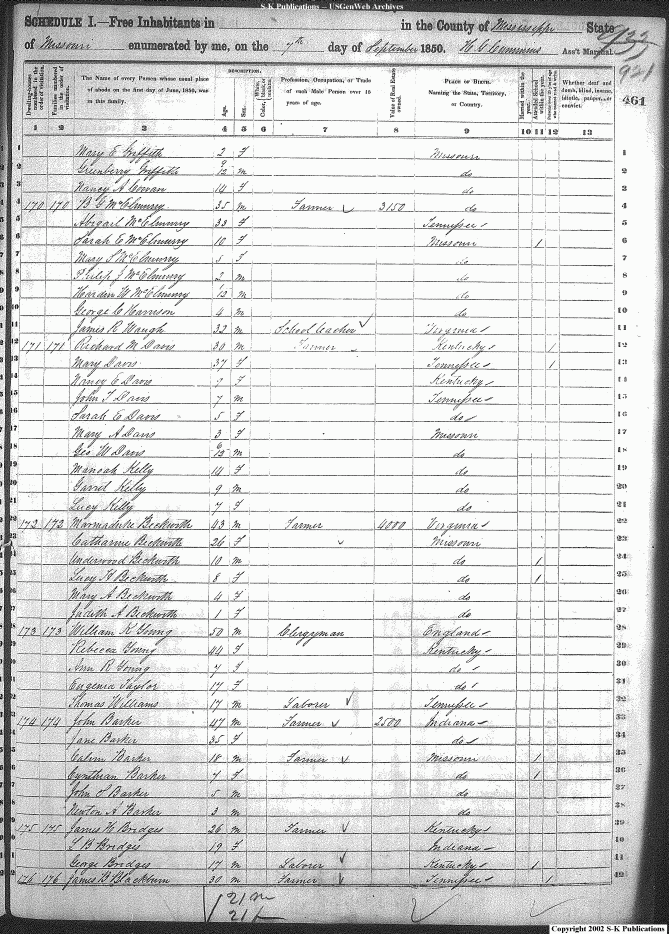 S-K Publications — USGenWeb Archives
SCHEDULE I.—Free Inhabitants in in the County of Mississippi State
of Missouri enumerated by me, on the 7th day of September 1850. Ass't Marshal.
921
461
DESCRIPTION.
The Name of every Person whose usual place of abode on the first day of June, 1850, was in this family.
Age.
Sex.
Profession, Occupation, or Trade of each Male Person over 15 years of age.
Value of Real Estate owned.
PLACE OF BIRTH. Naming the State, Territory, or Country.
Whether deaf and dumb, blind, insane, idiotic, pauper, or convict.
1 2 3 4 5 6 7 8 9 10 11 12 13
1 Mary E Griffith 2 F Missouri 1
2 Greenberry Griffith 9/12 m do 2
3 Nancy A Cowan 14 F do 3
4 170 170 B G McElmurry 35 m Farmer 3150 do 4
5 Abigail McElmurry 33 F Tennessee 5
6 Sarah C McElmurry 10 F Missouri 1 6
7 Mary S McElmurry 5 F do 7
8 Philip J McElmurry 2 m do 8
9 Harden W McElmurry /12 m do 9
10 George C Harrison 4 m do 10
11 James R Waugh 33 m School teacher Virginia 11
12 171 171 Richard M Davis 30 m Farmer Kentucky 1 12
Mary Davis 37 F Tennessee 1 13
Nancy E Davis F Kentucky 14
John T Davis 7 m Tennessee 15
Sarah E Davis 5 F do 16
Mary A Davis 3 F Missouri 17
Geo W Davis 6/12 m do 18
Manoah Kelly 14 F do 19
Garril Kelly 9 m do 20
Lucy Kelly 7 F do 21
172 172 Marmaduke Beckwith 43 m Farmer 4000 Virginia 22
Catharine Beckwith 26 F Missouri 23
Underwood Beckworth 10 m do 1 24
Lucy H Beckworth 8 F do 1 25
Mary A Beckwith 4 F do 26
Judith A Beckwith 1 F do 27
173 173 William K Young 50 m Clergyman England 28
Rebecca Young 44 F Kentucky 29
Ann R Young 7 F do 30
Eugenia Taylor 17 F do 31
Thomas Williams 17 m Laborer Tennessee 32
174 174 John Barker 47 m Farmer 2500 Indiana 33
Jane Barker 35 F do 34
Calvin Barker 18 m Farmer Missouri 1 35
Cynthian Barker 7 F do 1 36
John S Barker 5 m do 37
Newton A Barker 3 m do 38
175 175 James W Bridges 26 m Farmer Kentucky 39
L B Bridges 19 F Indiana 40
George Bridges 17 m Laborer Kentucky 1 41
176 176 James B Blackburn 30 m Farmer Tennessee 1 42
21 m
21 f
Copyright 2002 S-K Publications